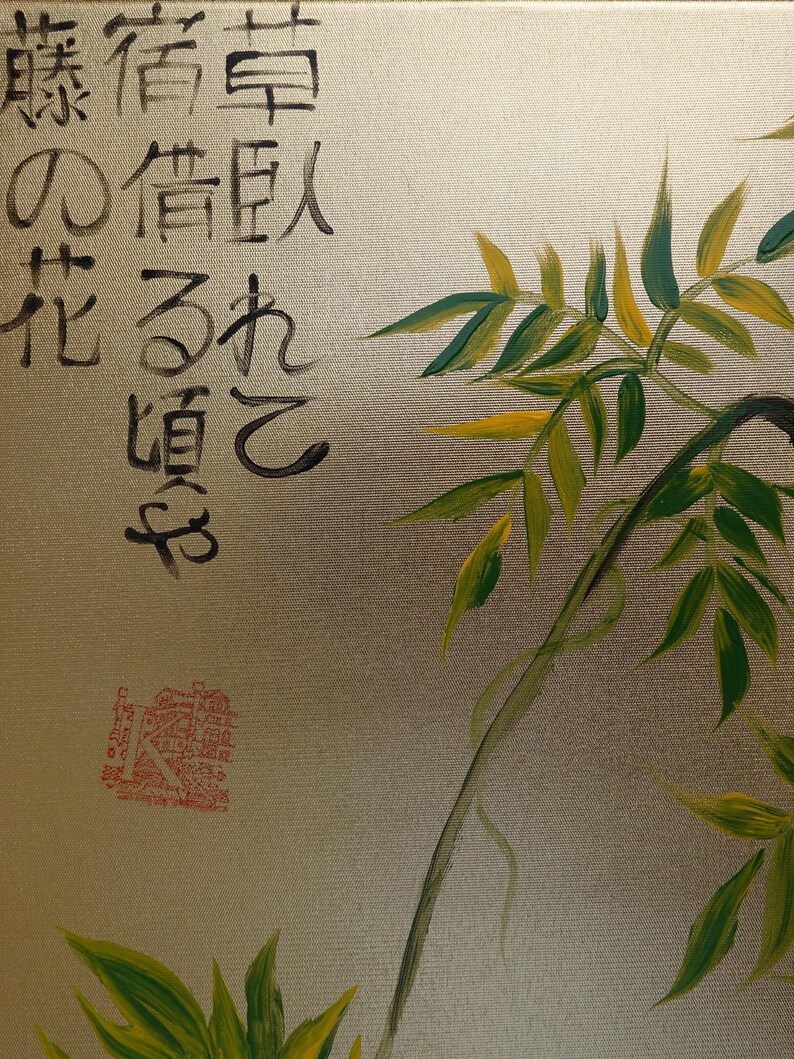 草臥れて
宿借る頃や
藤の花
K